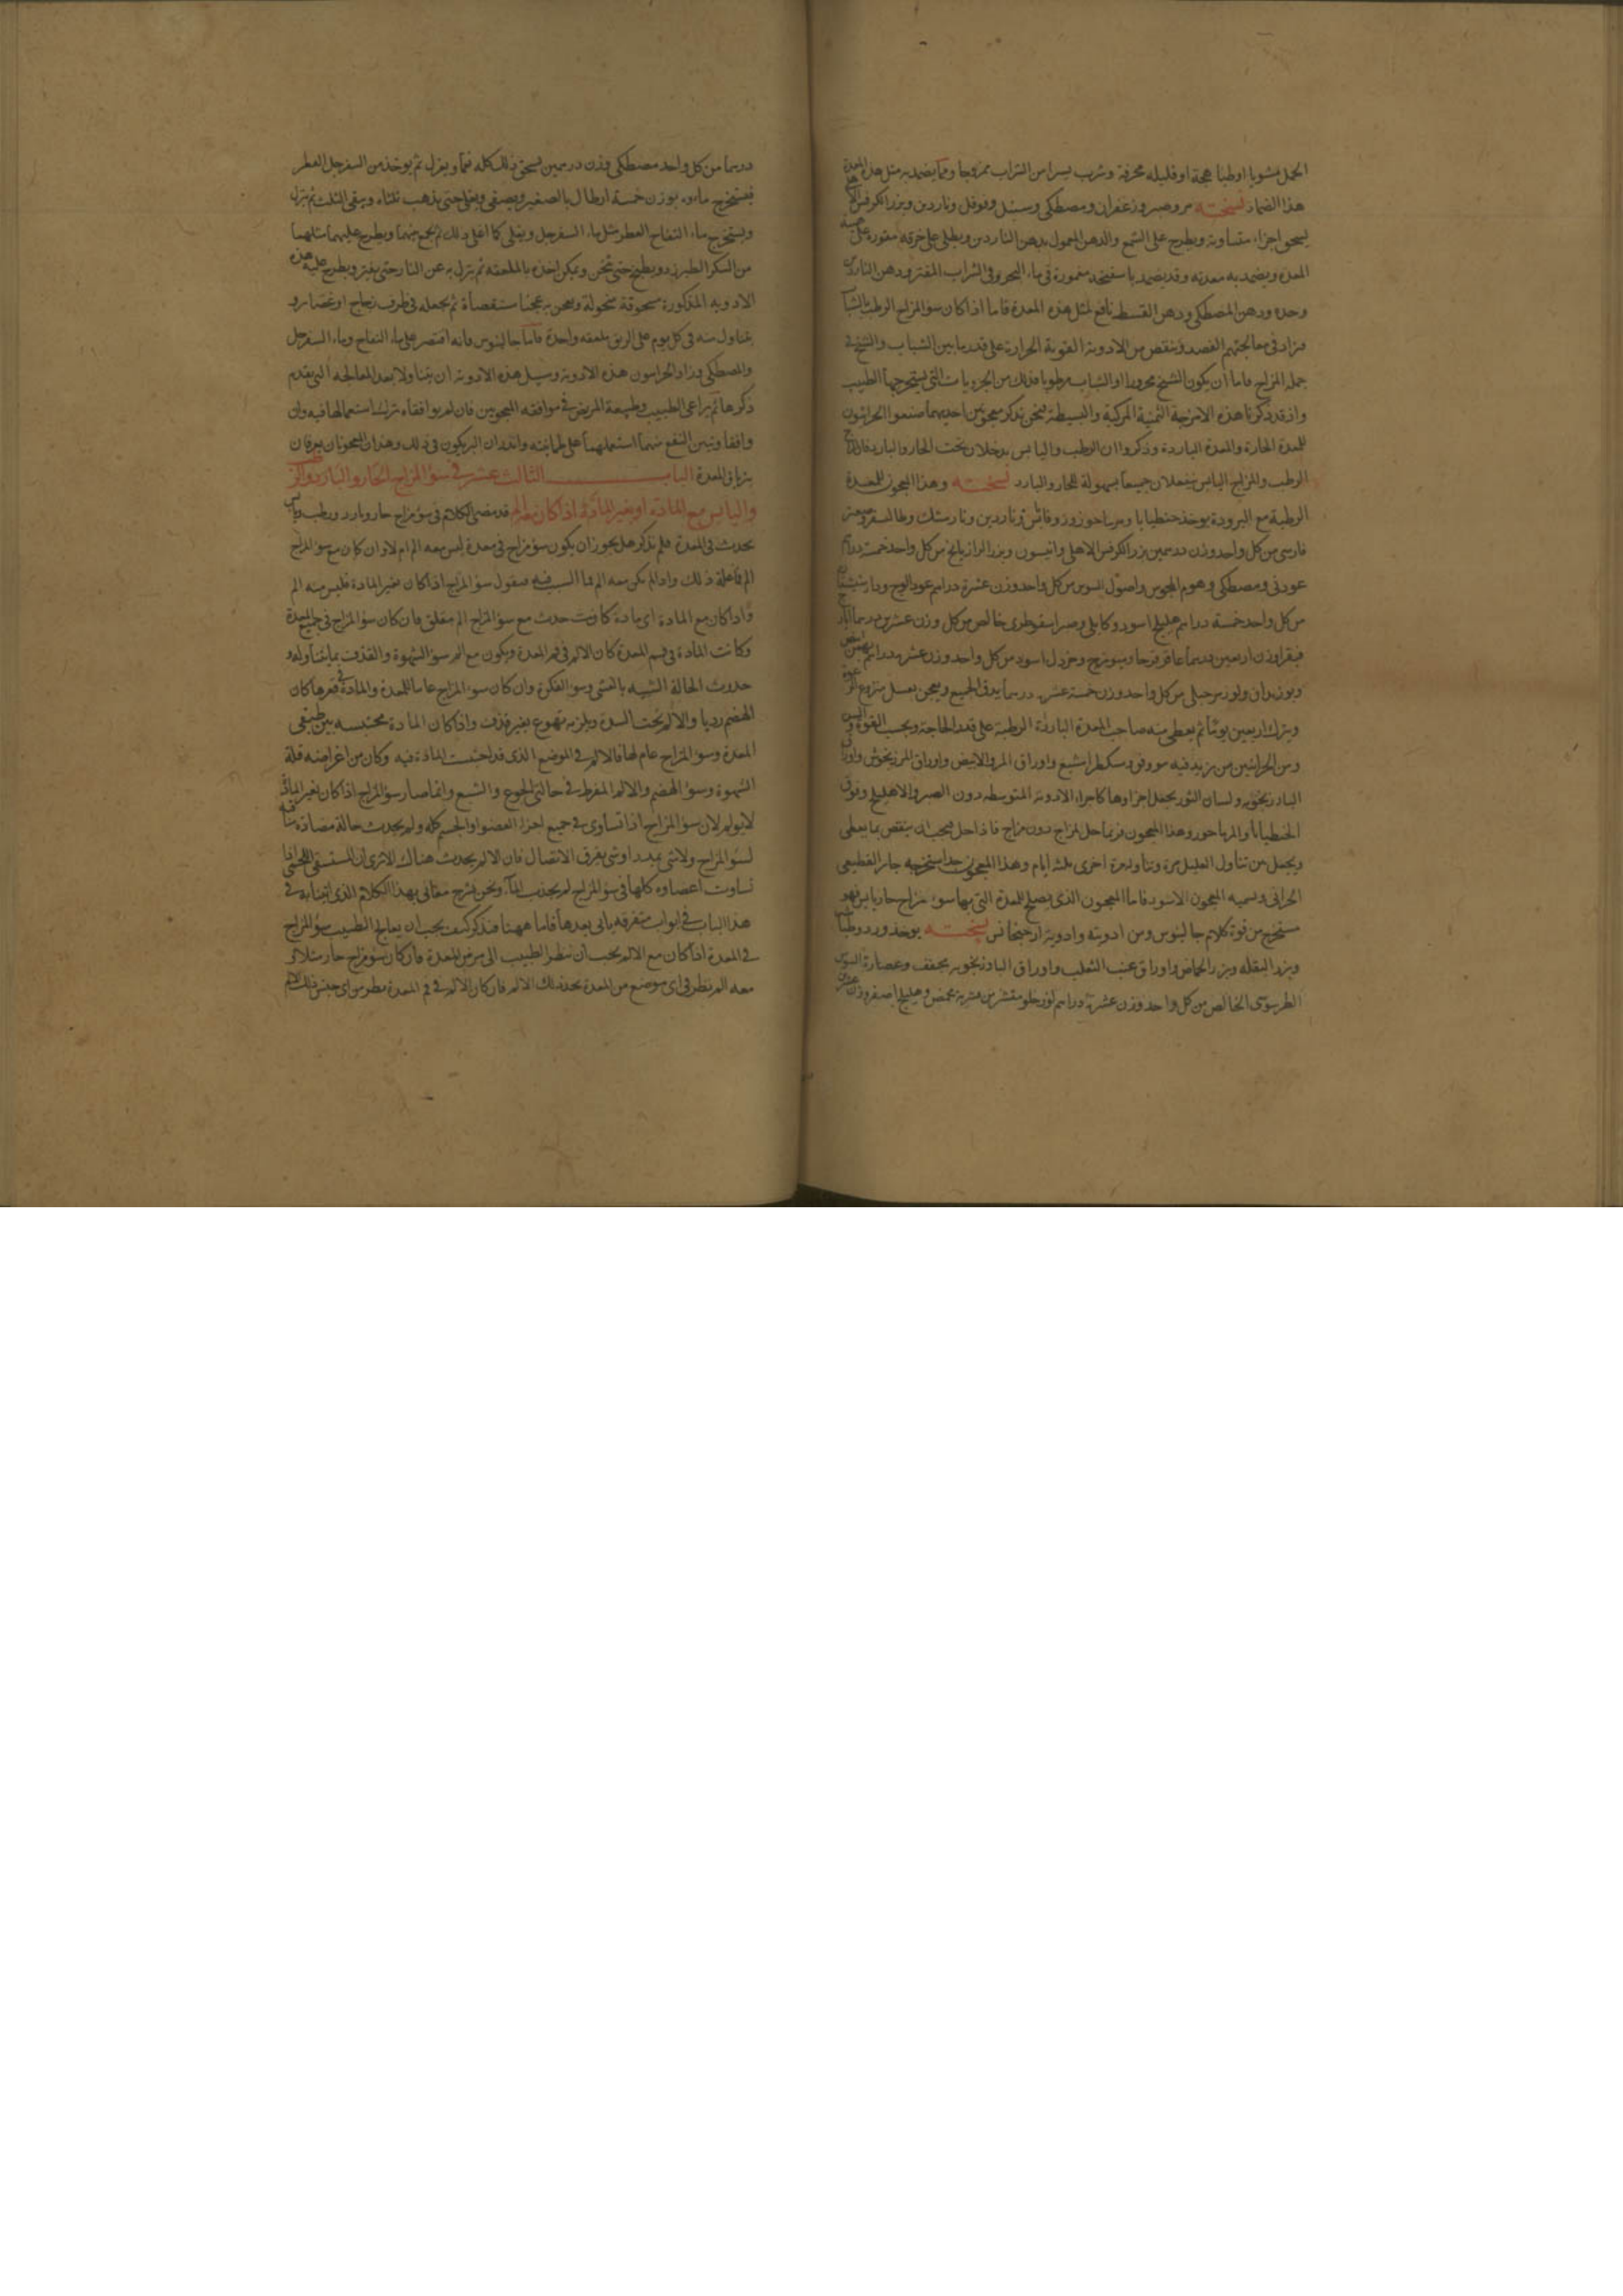 الحمل مشويا او طباهجة او قليله محرفة وشرب يسيرا من الشراب ممزوجا ومما يضمد به مثل هذه المعدة
هذا الضماد نسخته مر وصبر وزعفران ومصطكى وسنبل وفوفل وناردين وبزر الكرفس
يسحق اجزاء متساوية ويطرح على الشمع والدهن المعمول بدهن الناردين ويطلى على خرقه مقورة على
المعده ويضمد به معدته وقد يضمد باسفنجه مغمورة فى ماء البحر وفى الشراب المفتر ودهن الناردين
وحده ودهن المصطكى ودهن القسط نافع لمثل هذه المعدة فاما اذا كان سوء المزاج الرطب بالشباب
فزاد فى معالجتهم الفصد وينقص من الادوية القوية الحرارة على قدر ما بين الشباب والشيخ فى
جمله المزاج فاما ان يكون الشيخ محرورا او الشاب مرطوبا فذلك من الجزويات التى يستخرجها الطبيب
واذ قد ذكرنا هذه الامزجة الثمنية المركبة والبسيطة فنحن نذكر معجونين احديهما صنعوا الحرانيون
للمعدة الحارة والمعدة الباردة وذكروا ان الرطب واليابس يدخلان تحت الحار والبارد فالمزاج
الرطب والمزاج اليابس ينفعلان جميعا بسهولة للحار والبارد نسخته وهذا المعجون للمعدة
الرطبة مع البرودة يوخذ جنطيانا ومرماحوز وزوفا يابس وناردين ونارمشك وطاليسفر وصعتر
فارسى من كل واحد وزن درهمين بزر الكرفس الاهلى وانيسون وبزر الرازيانج من كل واحد خمسة دراهم
عود نى ومصطكى وهوم المجوس واصول السوس من كل واحد وزن عشرة دراهم عود الوج ودارشيشعان
من كل واحد خمسة دراهم هليلج اسود وكابلى وصبر اسقوطرى خالص من كل وزن عشرين درهما ايارج
فيقرا وزن اربعين درهما عاقرقرحا وميويزج وخردل اسود من كل واحد وزن عشرة دراهم بهمن ابيض
وبوزيدان ولوز مر جبلى من كل واحد وزن خمسة عشر درهما يدق الجميع ويعجن بعسل منزوع الرغوة
ويترك اربعين يوما ثم يعطى منه صاحب المعدة الباردة الرطبة على قدر الحاجة وبحسب القوة والسن
ومن الحرانيين من يزيد فيه مو وفو وسكطرامشيع واوراق المرو الابيض واوراق المرزنجوش واوراق
البادرنجويه ولسان الثور يجعل اجزاوها كاجزاء الادوية المتوسطه دون الصبر والاهليلج وفوق
الجنطيانا والمرماحوز وهذا المعجون فربما حل المزاج دون مزاج فاذا حل فيجب ان ينقص مما يعطى
ويجعل من تناول العليل مرة وتناوله مرة اخرى ثلثه ايام وهذا المعجون جدا استخرجه جابر القطيعى
الحرانى ويسميه المعجون الاسود فاما المعجون الذى يصلح للمعدة التى بها سوء مزاج حار يابس فهو
مستخرج من قوة كلام جالينوس ومن ادويته وادوية ارجيجانس نسخته يوخذ ورد وطباشير
وبزر البقله وبزر الحماض واوراق عنب الثعلب واوراق البادرنجويه مجفف وعصارة السوس
الطرسوسى الخالص من كل واحد وزن عشرة دراهم لوز حلو مقشر من قشريه محمص وهليلج اصفر وزن عشرين
درهما من كل واحد مصطكى وزن درهمين يسحق ذلك كله نعما ويعزل ثم يوخذ من السفرجل العطر
فيستخرج ماءه بوزن خمسة ارطال بالصغير ويصفى ويغلى حتى يذهب ثلثاه ويبقى الثلث ثم ينزل
ويستخرج ماء التفاح العطر مثل ماء السفرجل ويغلى كما اغلى ذلك ثم يجمع بينهما ويطرح عليهما مثلهما
من السكر الطبرزد ويطبخ حتى يثخن ويمكن اخذه بالملعقه ثم ينزل به عن النار حتى يفتر ويطرح عليه هذه
الادويه المذكورة مسحوقة منخولة ويعجن به عجنا مستقصاة ثم يجعله فى ظرف زجاج او غضار و
يتناول منه فى كل يوم على الريق ملعقه واحدة فاما جالينوس فانه اقتصر على ماء التفاح وماء السفرجل
والمصطكى وزاد الحرانيون هذه الادوية وسبيل هذه الادوية ان يتناولا بعد المعالجه التى يقدم
ذكرها ثم يراعى الطبيب وطبيعة المريض فى موافقه المعجونين فان لم يوافقاه ترك استعمالها فيه وان
وافقا وتبين النفع منهما استعملهما على طمانينه وانذر ان البر يكون فى ذلك وهذان المعجونان يعرفان
بترياق المعدة الباب الثالث عشر فى سوء المزاج الحار والبارد والرطب
واليابس مع المادة او بغير المادة اذا كان مع الم قد مضى الكلام فى سوء مزاج حار وبارد ورطب ويابس
يحدث فى المعدة فلم نذكر هل يجوز ان يكون سوء مزاج فى معدة ليس معه الم ام لا وان كان مع سوء المزاج
الم فما علة ذلك واذا لم يكن معه الم فما السبب فيه فنقول سوء المزاج اذا كان بغير المادة فليس منه الم
واذا كان مع المادة اى مادة كانت حدث مع سوء المزاج الم مقلق فان كان سوء المزاج فى جميع المعدة
وكانت المادة فى فم المعدة كان الالم فى فم المعدة ويكون مع الم سوء الشهوة والقذف بما يتناوله و
حدوث الحالة الشبيه بالغشى وسوء الفكرة وان كان سوء المزاج عاما للمعدة والمادة فى قعرها كان
الهضم رديا والالم تحت السرة ويلزمه تهوع بغير قذف واذا كان المادة محتبسه بين طبقى
المعدة وسوء المزاج عام لها فالالم فى الموضع الذى قد احتبست المادة فيه وكان من اعراضه قلة
الشهوة وسوء الهضم والالم المفرط فى حالتى الجوع والشبع وانما صار سوء المزاج اذا كان بغير المادة
لا يولم لان سوء المزاج اذا تساوى فى جميع اجزاء العضو او الجسم كله ولم يحدث حالة مضادة منافية
لسوء المزاج ولا شى يمدد او شى يفرق الاتصال فان الالم يحدث هناك الا ترى ان المستسقى اللحمى اذا
تساوت اعضاوه كلها فى سوء المزاج لم يجذب الماء ونحن نشرح معانى بهذا الكلام الذى اتينا به فى
هذا الباب فى ابواب متفرقه ياتى بعدها فاما ههنا فنذكر كيف يجب ان يعالج الطبيب سوء المزاج
فى المعدة اذا كان مع الالم يجب ان ينظر الطبيب الى مرض المعدة فان كان سوء مزاج حار مثلا و
معه الم نظر فى اى موضع من المعدة يجد ذلك الالم فان كان الالم فى فم المعدة نظر من اى جنس ذلك الالم